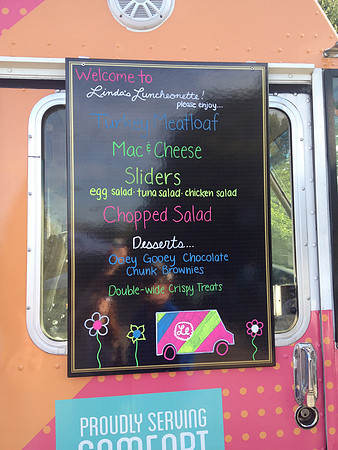 Welcome to
Linda's Luncheonette!
please enjoy...
Turkey Meatloaf
Mac & Cheese
Sliders
egg salad · tuna salad · chicken salad
Chopped Salad
Desserts...
Ooey Gooey Chocolate
Chunk Brownies
Double-wide Crispy Treats
LL
PROUDLY SERVING
COMFORT